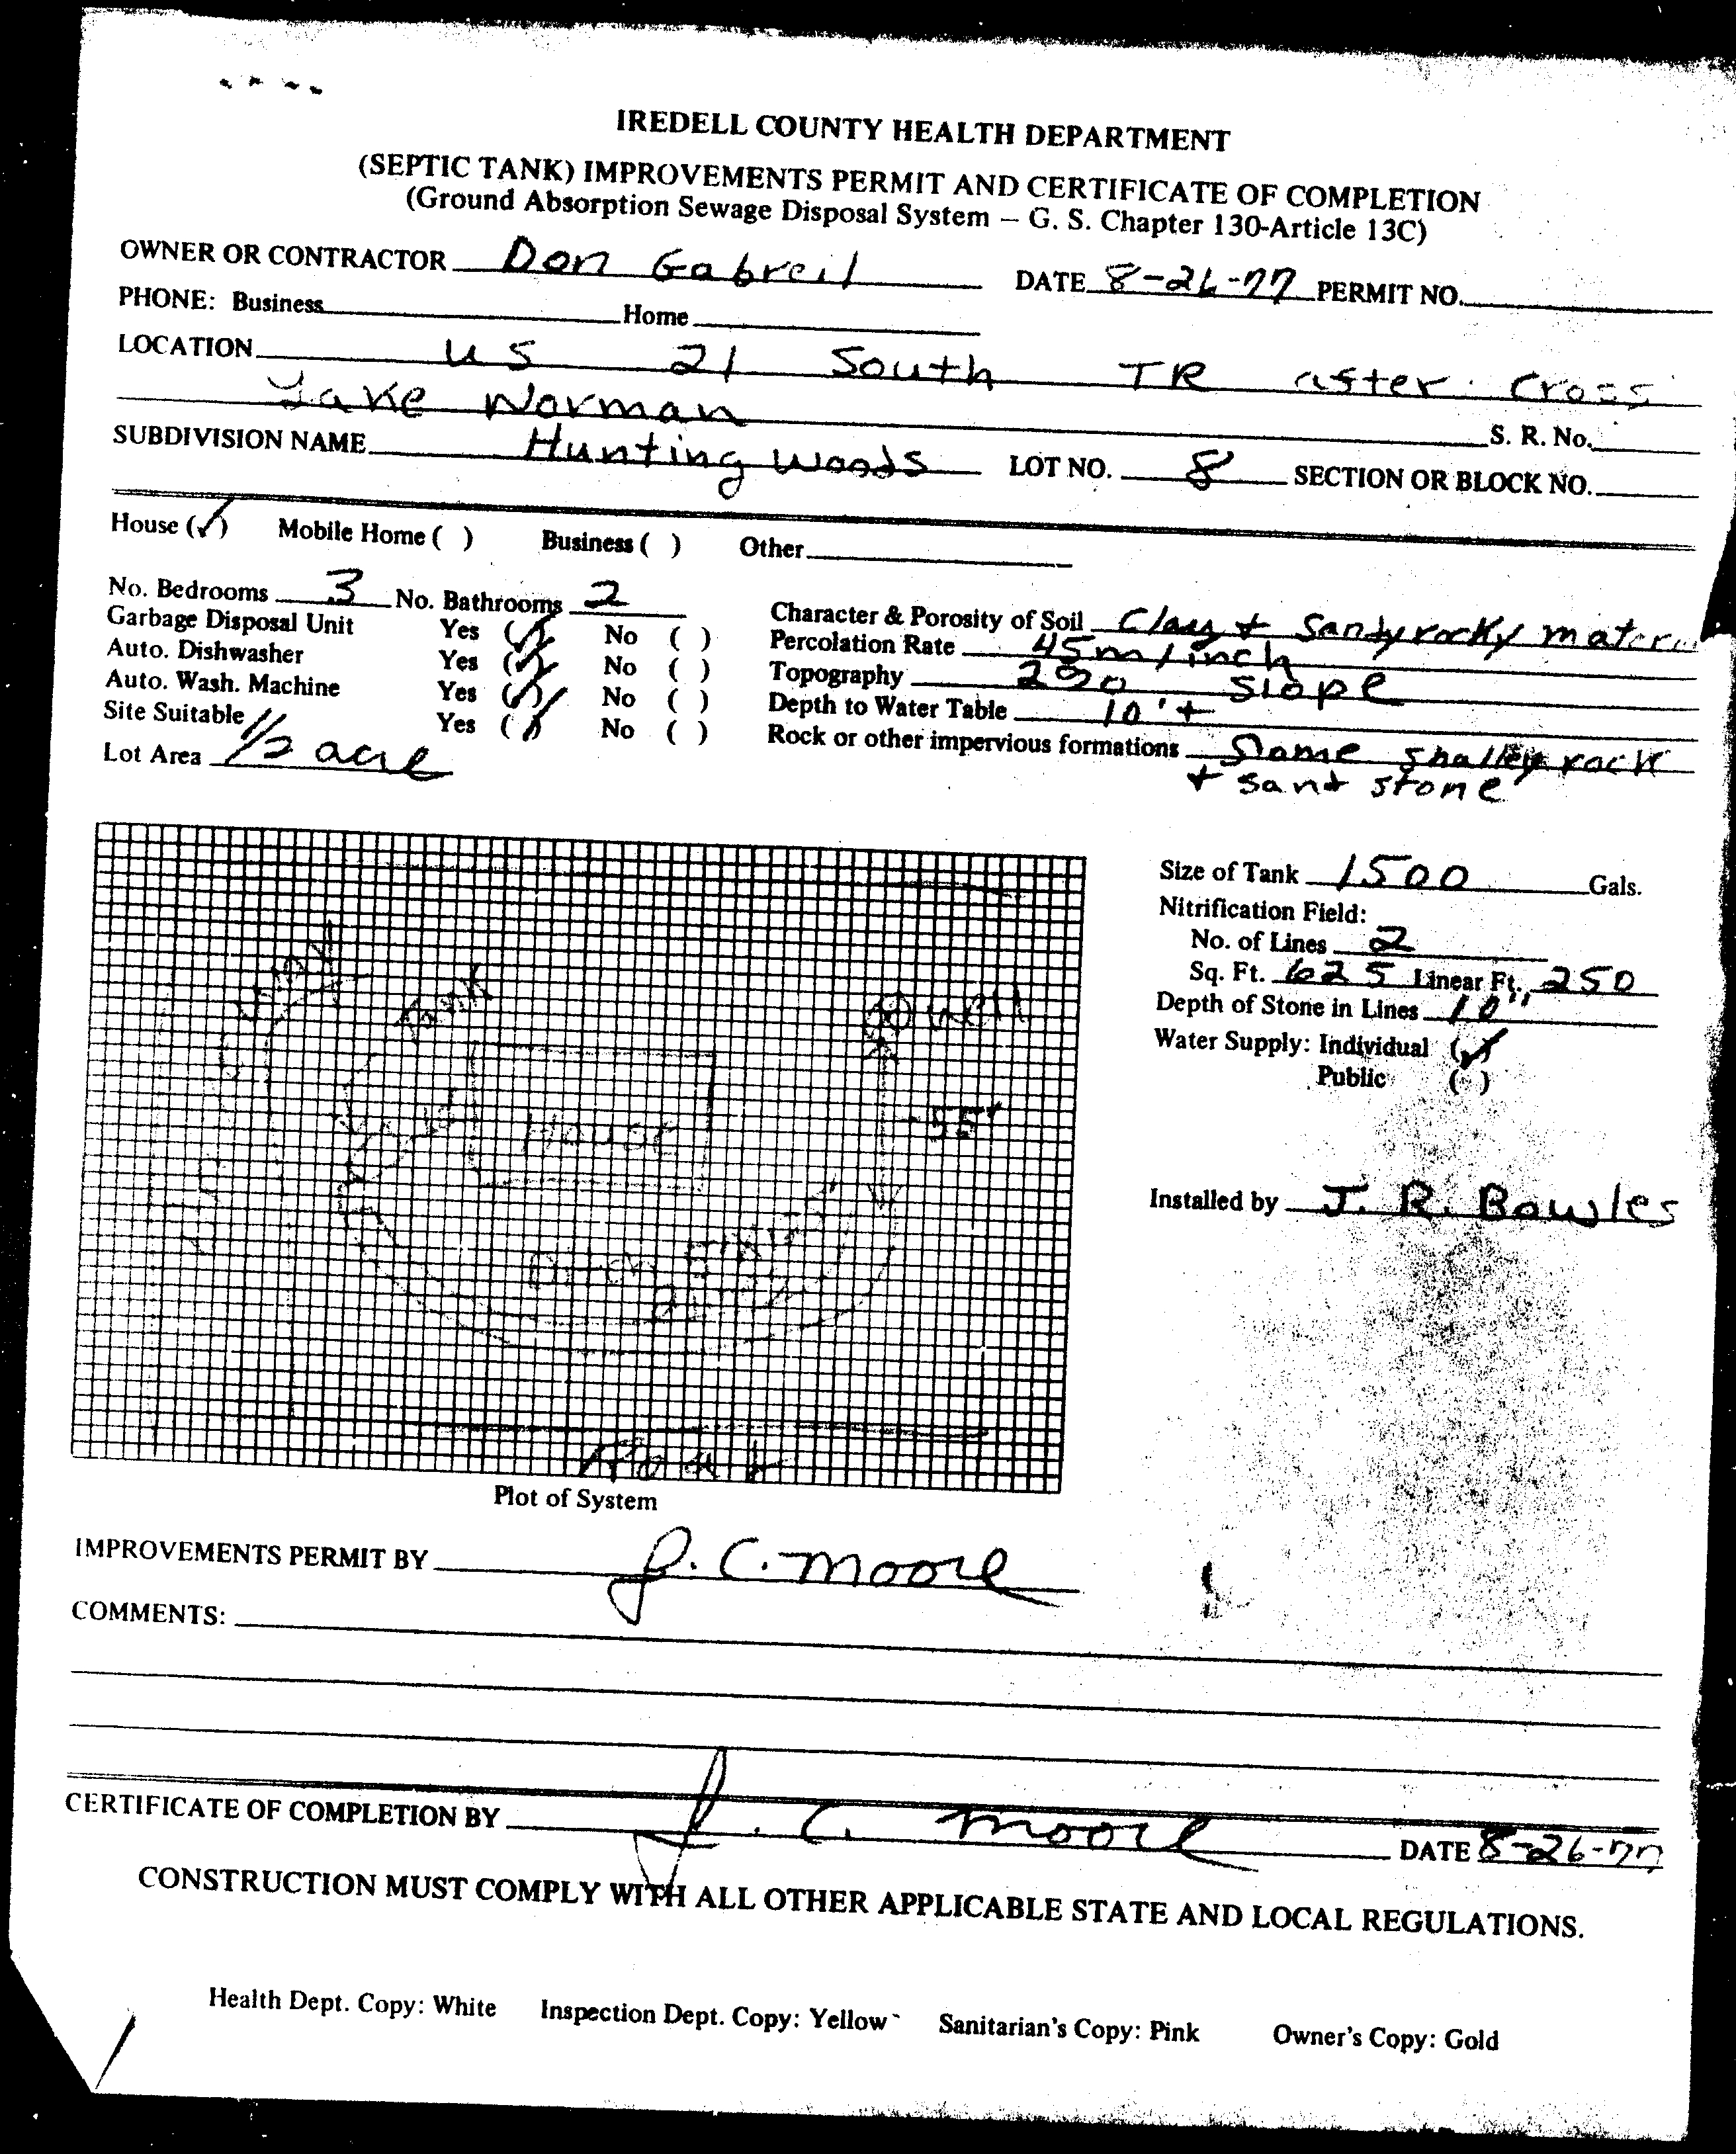 IREDELL COUNTY HEALTH DEPARTMENT
(SEPTIC TANK) IMPROVEMENTS PERMIT AND CERTIFICATE OF COMPLETION
(Ground Absorption Sewage Disposal System – G. S. Chapter 130-Article 13C)
OWNER OR CONTRACTOR Don Gabreil DATE 8-26-77 PERMIT NO.
PHONE: Business Home
LOCATION US 21 South TR after Cross
Lake Norman S. R. No.
SUBDIVISION NAME Hunting Woods LOT NO. 8 SECTION OR BLOCK NO.
House (✓) Mobile Home ( ) Business ( ) Other
No. Bedrooms 3 No. Bathrooms 2
Garbage Disposal Unit Yes (✓) No ( )
Auto. Dishwasher Yes (✓) No ( )
Auto. Wash. Machine Yes (✓) No ( )
Site Suitable Yes (✓) No ( )
Lot Area 1/2 acre
Character & Porosity of Soil Clay + Sandy rocky
Percolation Rate 45m/inch
Topography slope
Depth to Water Table 10'+
Rock or other impervious formations Some shalley rock
+ sand stone
Size of Tank 1500 Gals.
Nitrification Field:
No. of Lines 2
Sq. Ft. 625 Linear Ft. 250
Depth of Stone in Lines 10"
Water Supply: Individual (✓)
Public ( )
Installed by J. R. Bowles
Tank
Well
House
55'
Road
Plot of System
IMPROVEMENTS PERMIT BY J. C. Moore
COMMENTS:
CERTIFICATE OF COMPLETION BY J. C. Moore DATE 8-26-77
CONSTRUCTION MUST COMPLY WITH ALL OTHER APPLICABLE STATE AND LOCAL REGULATIONS.
Health Dept. Copy: White Inspection Dept. Copy: Yellow Sanitarian's Copy: Pink Owner's Copy: Gold